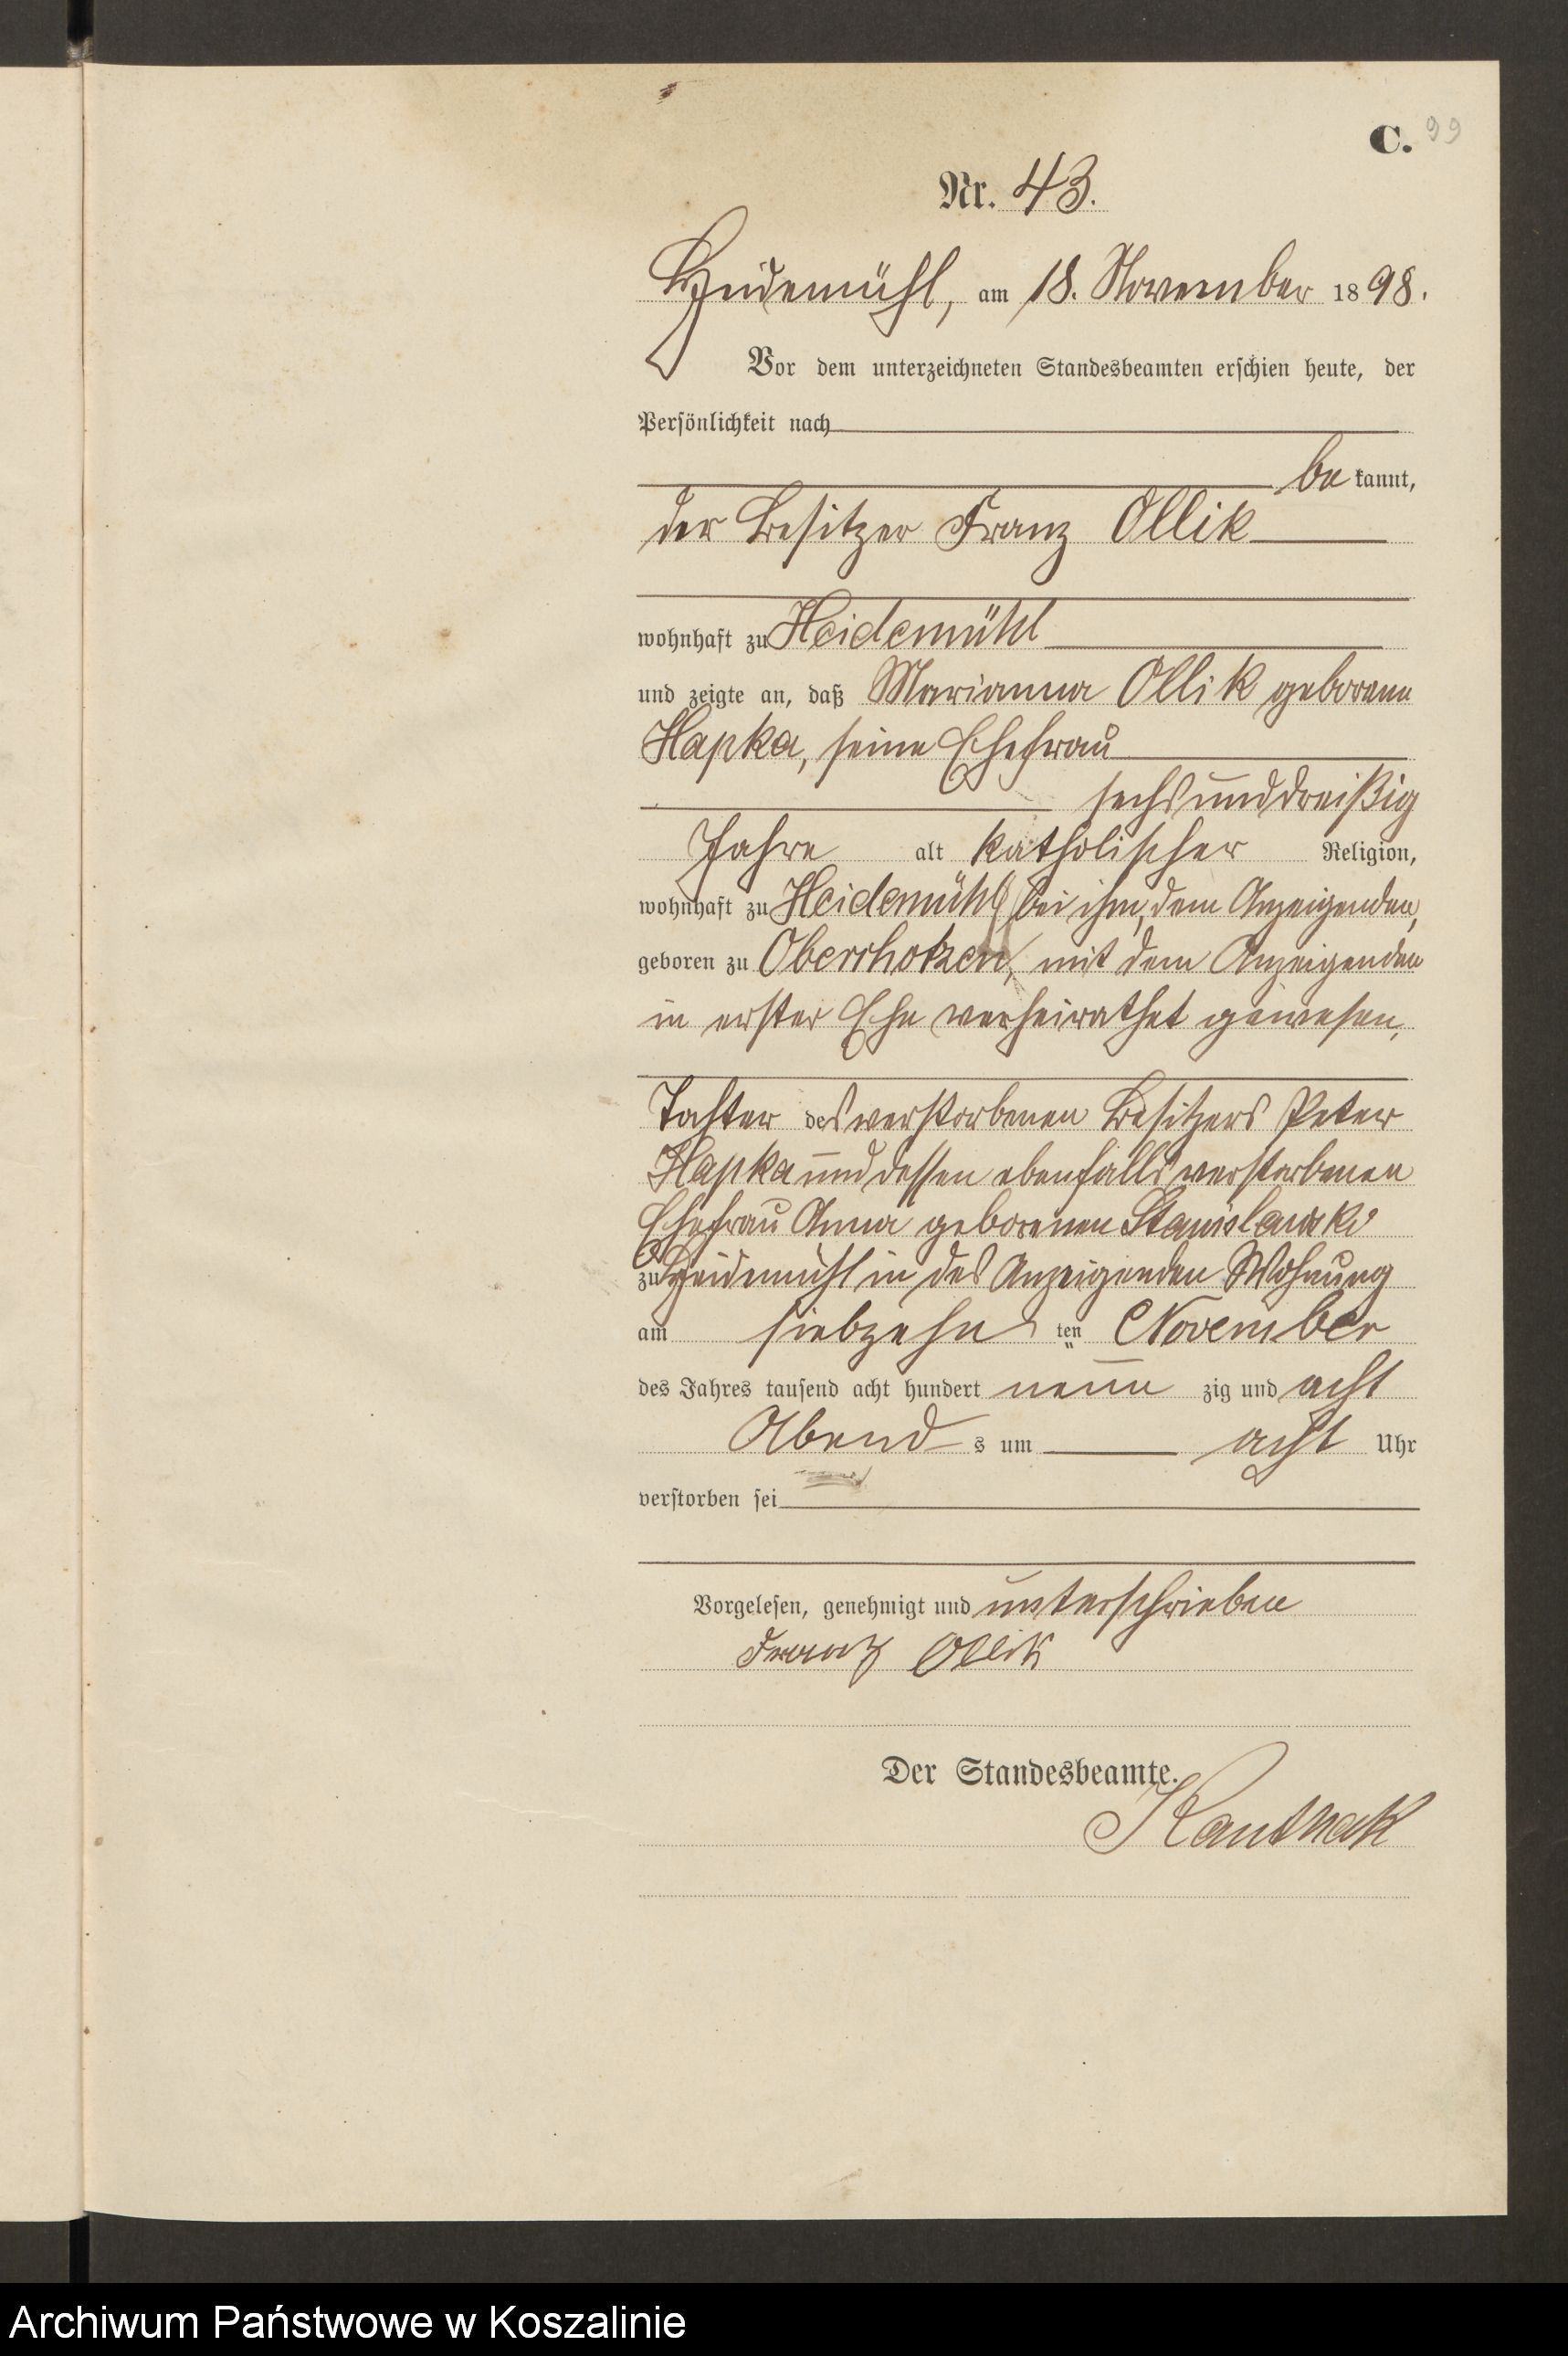 C. 99
Nr. 43.
Heidemühl, am 18. November 1898.
Vor dem unterzeichneten Standesbeamten erschien heute, der
Persönlichkeit nach
be kannt,
der Besitzer Franz Ollik
wohnhaft zu Heidemühl
und zeigte an, daß Marianna Ollik geborene
Hapka, seine Ehefrau
sechsunddreißig
Jahre alt katholischer Religion,
wohnhaft zu Heidemühl bei ihm, dem Anzeigenden,
geboren zu mit dem Anzeigenden
in erster Ehe verheirathet gewesen,
Tochter des verstorbenen Besitzers Peter
Hapka und dessen ebenfalls verstorbenen
Ehefrau Anna geborenen Stanislawski
zu Heidemühl in des Anzeigenden Wohnung
am siebzehn ten November
des Jahres tausend acht hundert neun zig und acht
Abend s um acht Uhr
verstorben sei
Vorgelesen, genehmigt und unterschrieben
Franz Ollik
Der Standesbeamte.
Kantnak
Archiwum Państwowe w Koszalinie